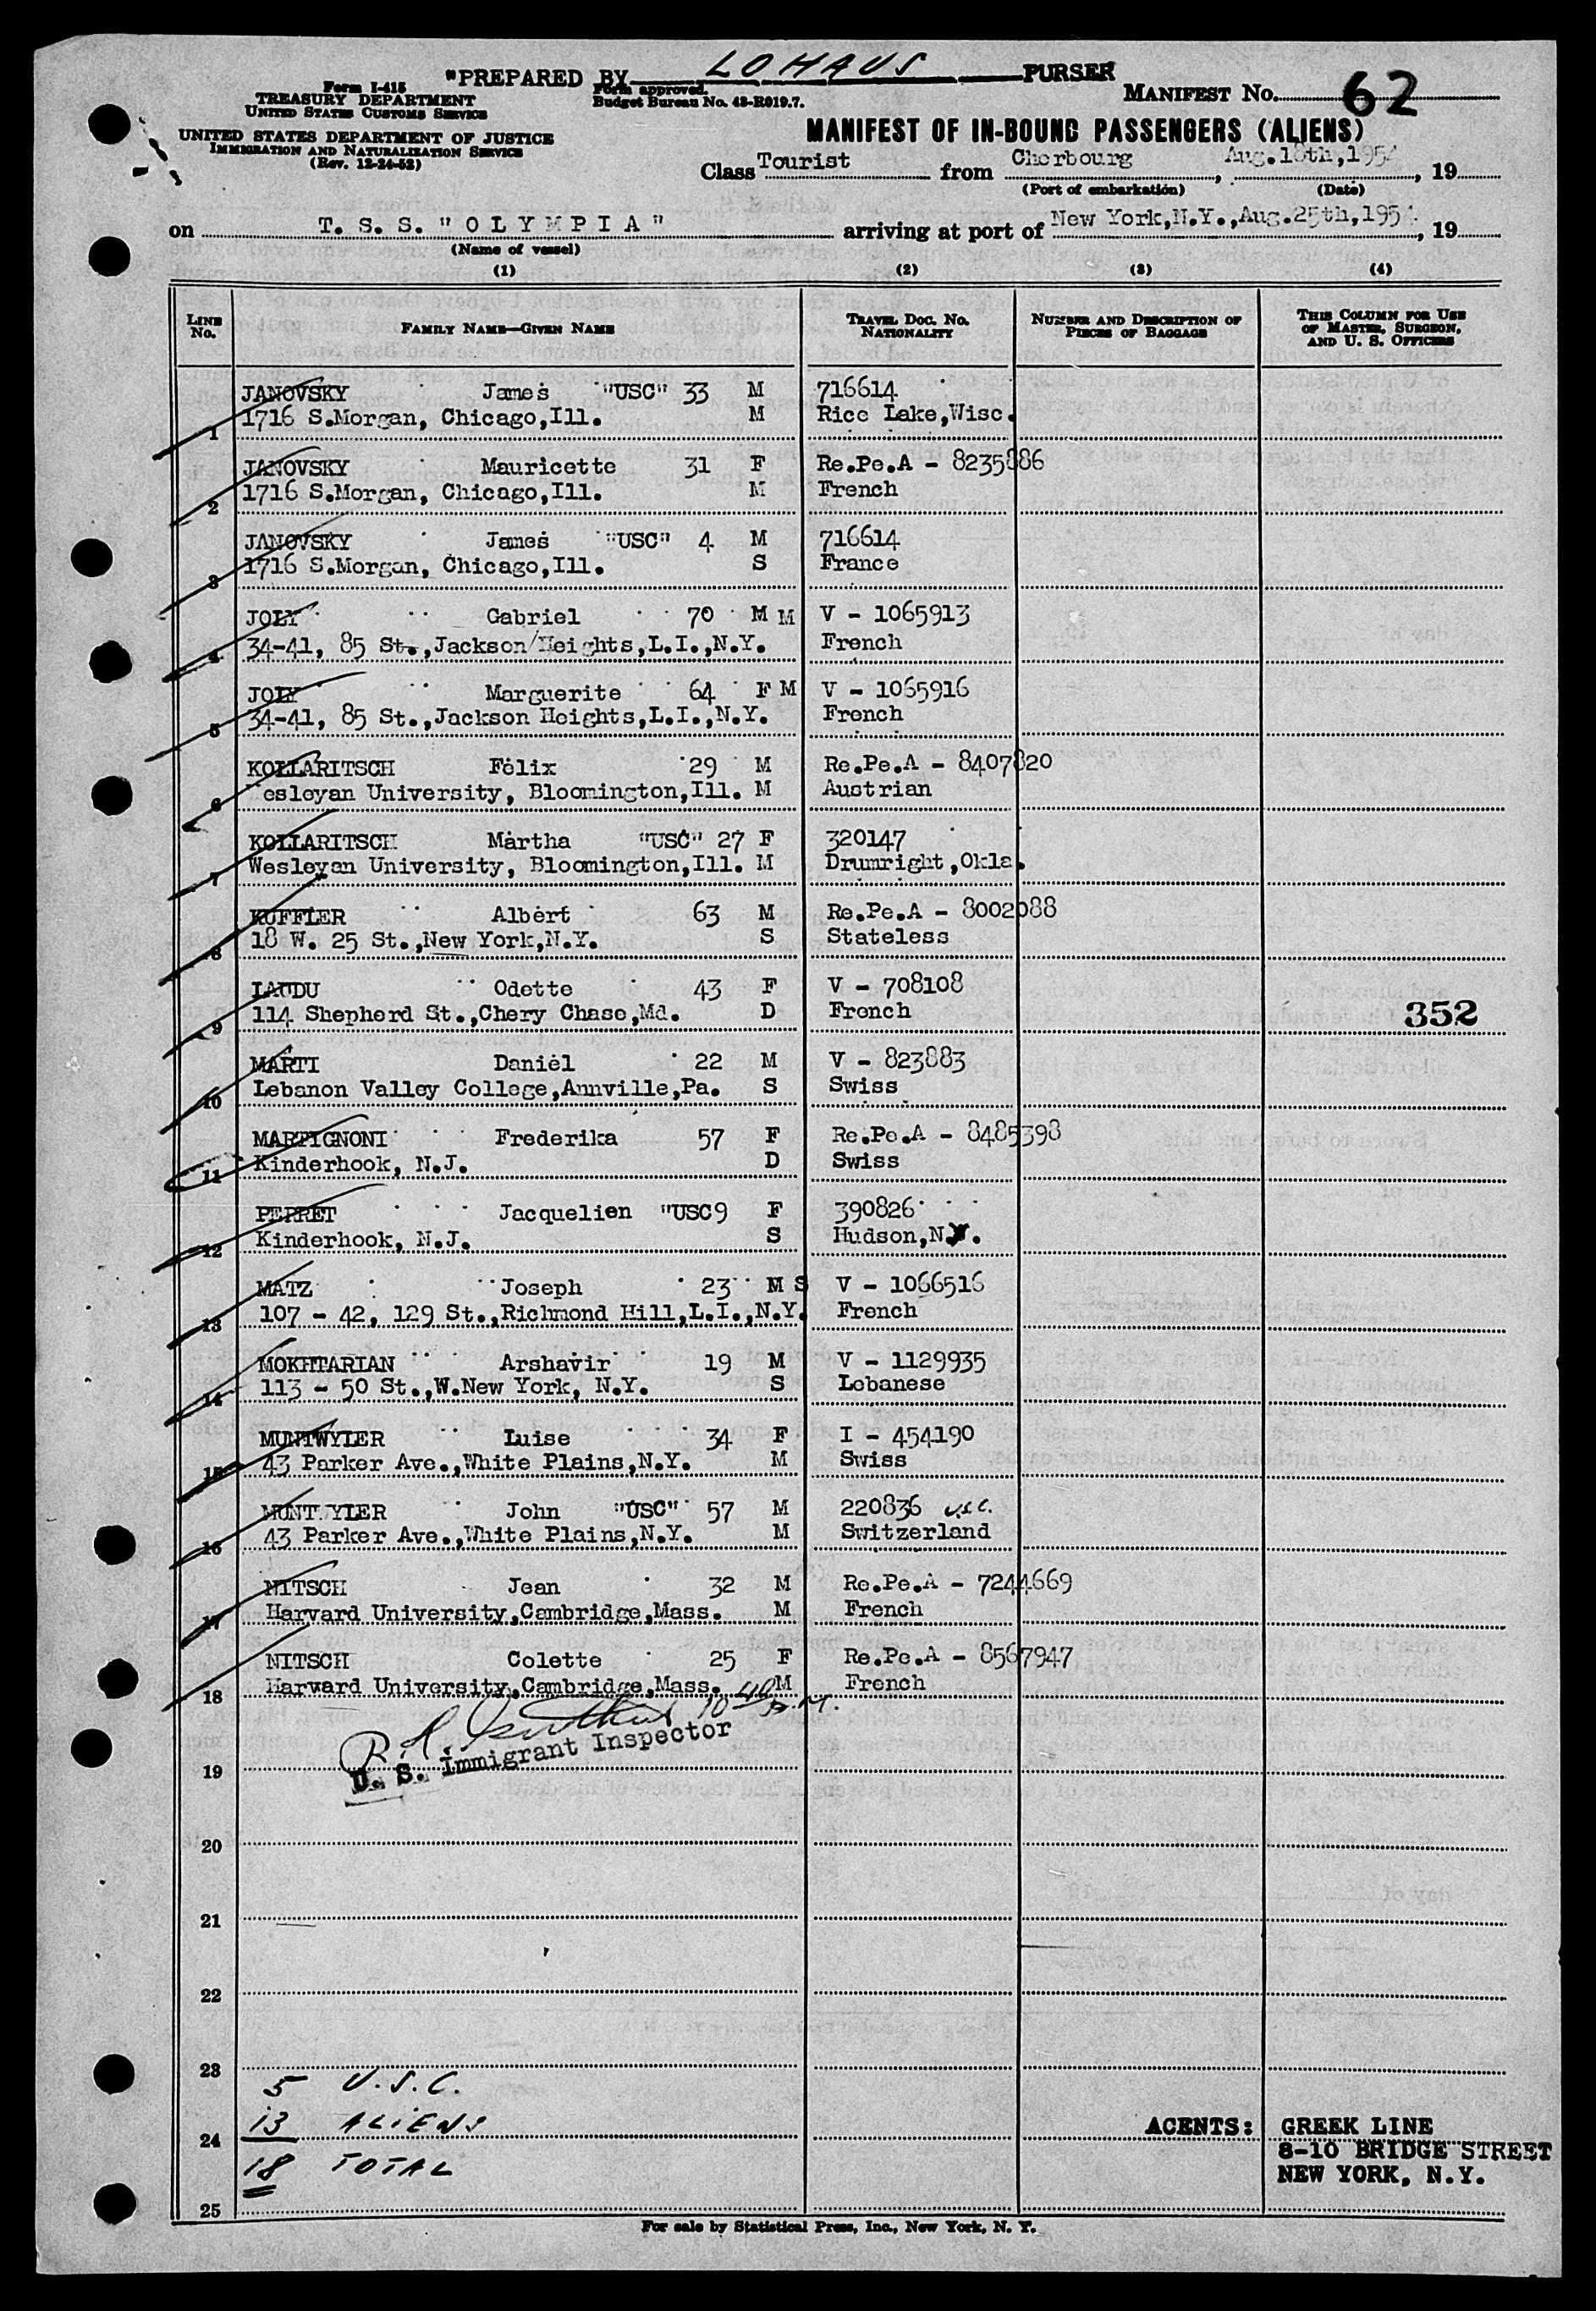 "PREPARED BY LOHAUS PURSER
Form I-415
TREASURY DEPARTMENT
UNITED STATES CUSTOMS SERVICE
Form approved.
Budget Bureau No. 43-R019.7.
MANIFEST NO. 62
UNITED STATES DEPARTMENT OF JUSTICE
IMMIGRATION AND NATURALIZATION SERVICE
(Rev. 12-24-52)
MANIFEST OF IN-BOUND PASSENGERS (ALIENS)
Class Tourist from Cherbourg, Aug.18th,1954, 19
(Port of embarkation) (Date)
on T. S. S. "O L Y M P I A" arriving at port of New York,N.Y.,Aug.25th,1954, 19
(Name of vessel)
(1) (2) (3) (4)
LINE NO. FAMILY NAME—GIVEN NAME TRAVEL DOC. NO. NATIONALITY NUMBER AND DESCRIPTION OF PIECES OF BAGGAGE THIS COLUMN FOR USE OF MASTER, SURGEON, AND U. S. OFFICERS
JANOVSKY James "USC" 33 M 716614
1 1716 S.Morgan, Chicago,Ill. M Rice Lake,Wisc.
JANOVSKY Mauricette 31 F Re.Pe.A - 8235886
2 1716 S.Morgan, Chicago,Ill. M French
JANOVSKY James "USC" 4 M 716614
3 1716 S.Morgan, Chicago,Ill. S France
JOLY Gabriel 70 M M V - 1065913
4 34-41, 85 St.,Jackson/Heights,L.I.,N.Y. French
JOLY Marguerite 64 F M V - 1065916
5 34-41, 85 St.,Jackson Heights,L.I.,N.Y. French
KOLLARITSCH Félix 29 M Re.Pe.A - 8407820
6 esleyan University, Bloomington,Ill. M Austrian
KOLLARITSCH Martha "USC" 27 F 320147
7 Wesleyan University, Bloomington,Ill. M Drumright,Okla.
KUFFLER Albert 63 M Re.Pe.A - 8002088
8 18 W. 25 St.,New York,N.Y. S Stateless
LAUDU Odette 43 F V - 708108
9 114 Shepherd St.,Chery Chase,Md. D French 352
MARTI Daniel 22 M V - 823883
10 Lebanon Valley College,Annville,Pa. S Swiss
MARTIGNONI Frederika 57 F Re.Pe.A - 8485398
11 Kinderhook, N.J. D Swiss
PERRET Jacquelien "USC 9 F 390826
12 Kinderhook, N.J. S Hudson,N.Y.
MATZ Joseph 23 M S V - 1066516
13 107 - 42, 129 St.,Richmond Hill,L.I.,N.Y. French
MOKHTARIAN Arshavir 19 M V - 1129935
14 113 - 50 St.,W.New York, N.Y. S Lebanese
MUNTWYLER Luise 34 F I - 454190
15 43 Parker Ave.,White Plains,N.Y. M Swiss
MUNT YLER John "USC" 57 M 220836 U.S.C.
16 43 Parker Ave.,White Plains,N.Y. M Switzerland
NITSCH Jean 32 M Re.Pe.A - 7244669
17 Harvard University,Cambridge,Mass. M French
NITSCH Colette 25 F Re.Pe.A - 8567947
18 Harvard University,Cambridge,Mass. M French
10 40
U. S. Immigrant Inspector
19
20
21
22
23
5 U.S.C.
13 ALIENS
24
18 TOTAL
25
AGENTS: GREEK LINE
8-10 BRIDGE STREET
NEW YORK, N.Y.
For sale by Statistical Press, Inc., New York, N. Y.